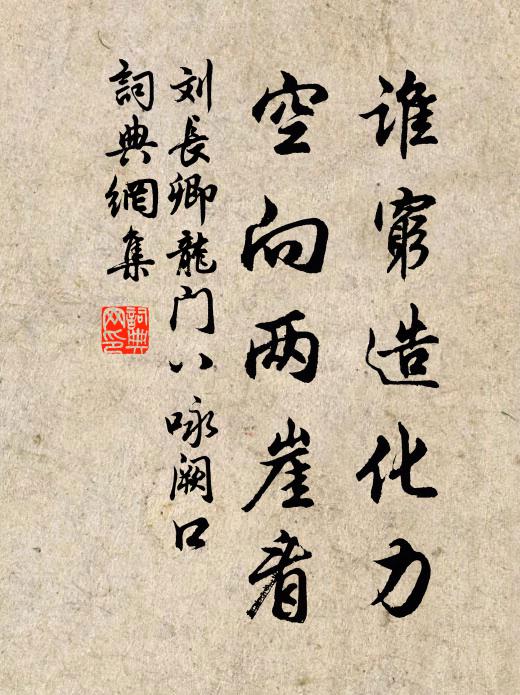 谁窮造化力
空向两崖看
刘長卿龍门八咏阙口
詞典網集
詞典网印